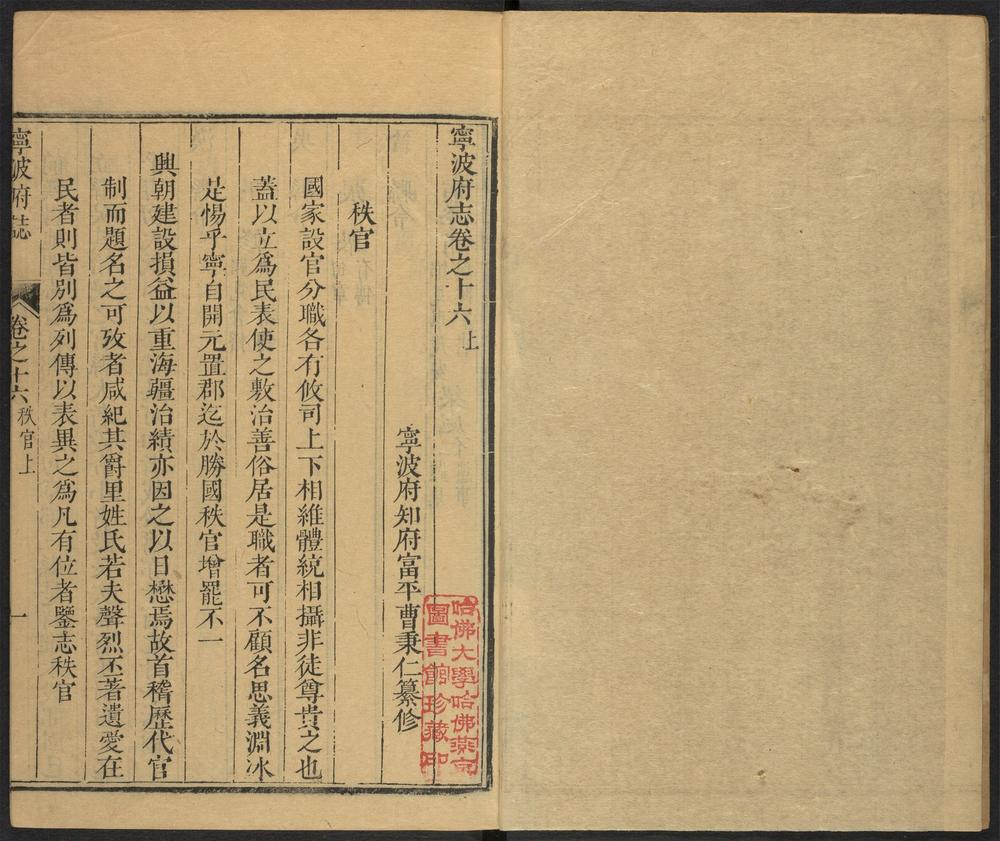 寧波府志卷之十六上
寧波府知府富平曹秉仁纂修
秩官
國家設官分職各有攸司上下相維體統相攝非徒尊貴之也
蓋以立爲民表使之敷治善俗居是職者可不顧名思義淵冰
是惕乎寧自開元置郡迄於勝國秩官增罷不一
興朝建設損益以重海疆治績亦因之以日懋焉故首稽歷代官
制而題名之可攷者咸紀其爵里姓氏若夫聲烈丕著遺愛在
民者則皆別爲列傳以表異之爲凡有位者鑒志秩官
寧波府誌
卷之十六
秩官上
一
哈佛大學哈佛燕京
圖書館珍藏印